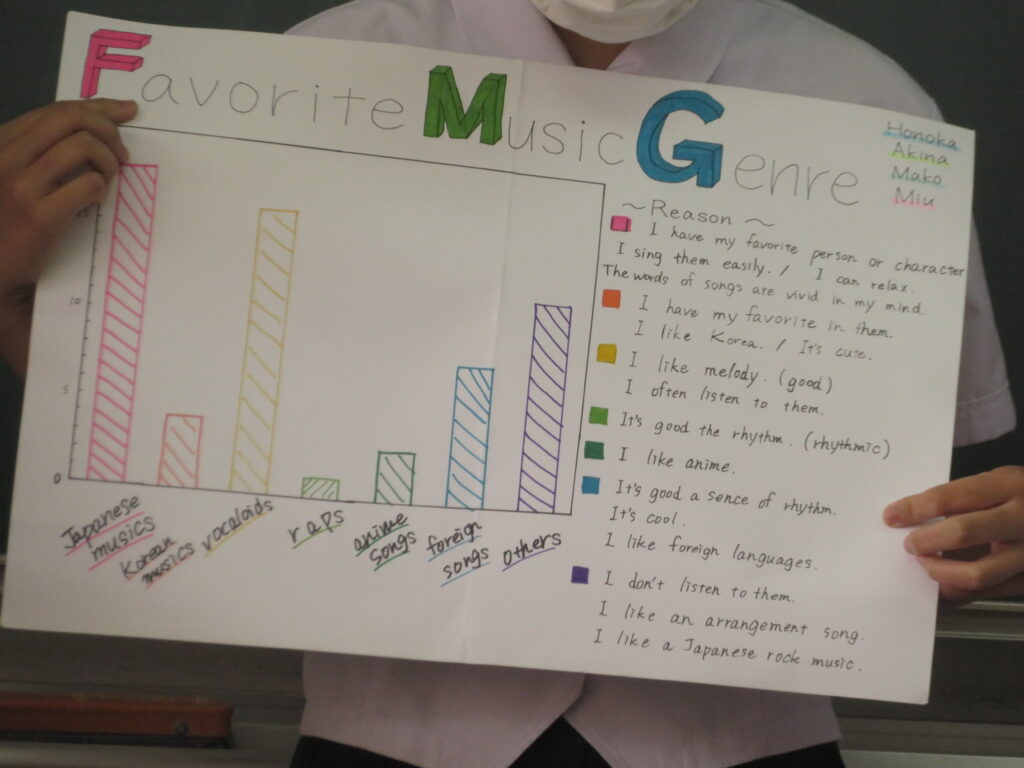 Favorite Music Genre
Honoka
Akina
Mako
Miu
15
10
5
0
Japanese musics
Korean musics
vocaloids
raps
anime songs
foreign songs
others
~Reason~
I have my favorite person or character
I sing them easily. / I can relax.
The words of songs are vivid in my mind.
I have my favorite in them.
I like Korea. / It's cute.
I like melody. (good)
I often listen to them.
It's good the rhythm. (rhythmic)
I like anime.
It's good a sence of rhythm.
It's cool.
I like foreign languages.
I don't listen to them.
I like an arrangement song.
I like a Japanese rock music.